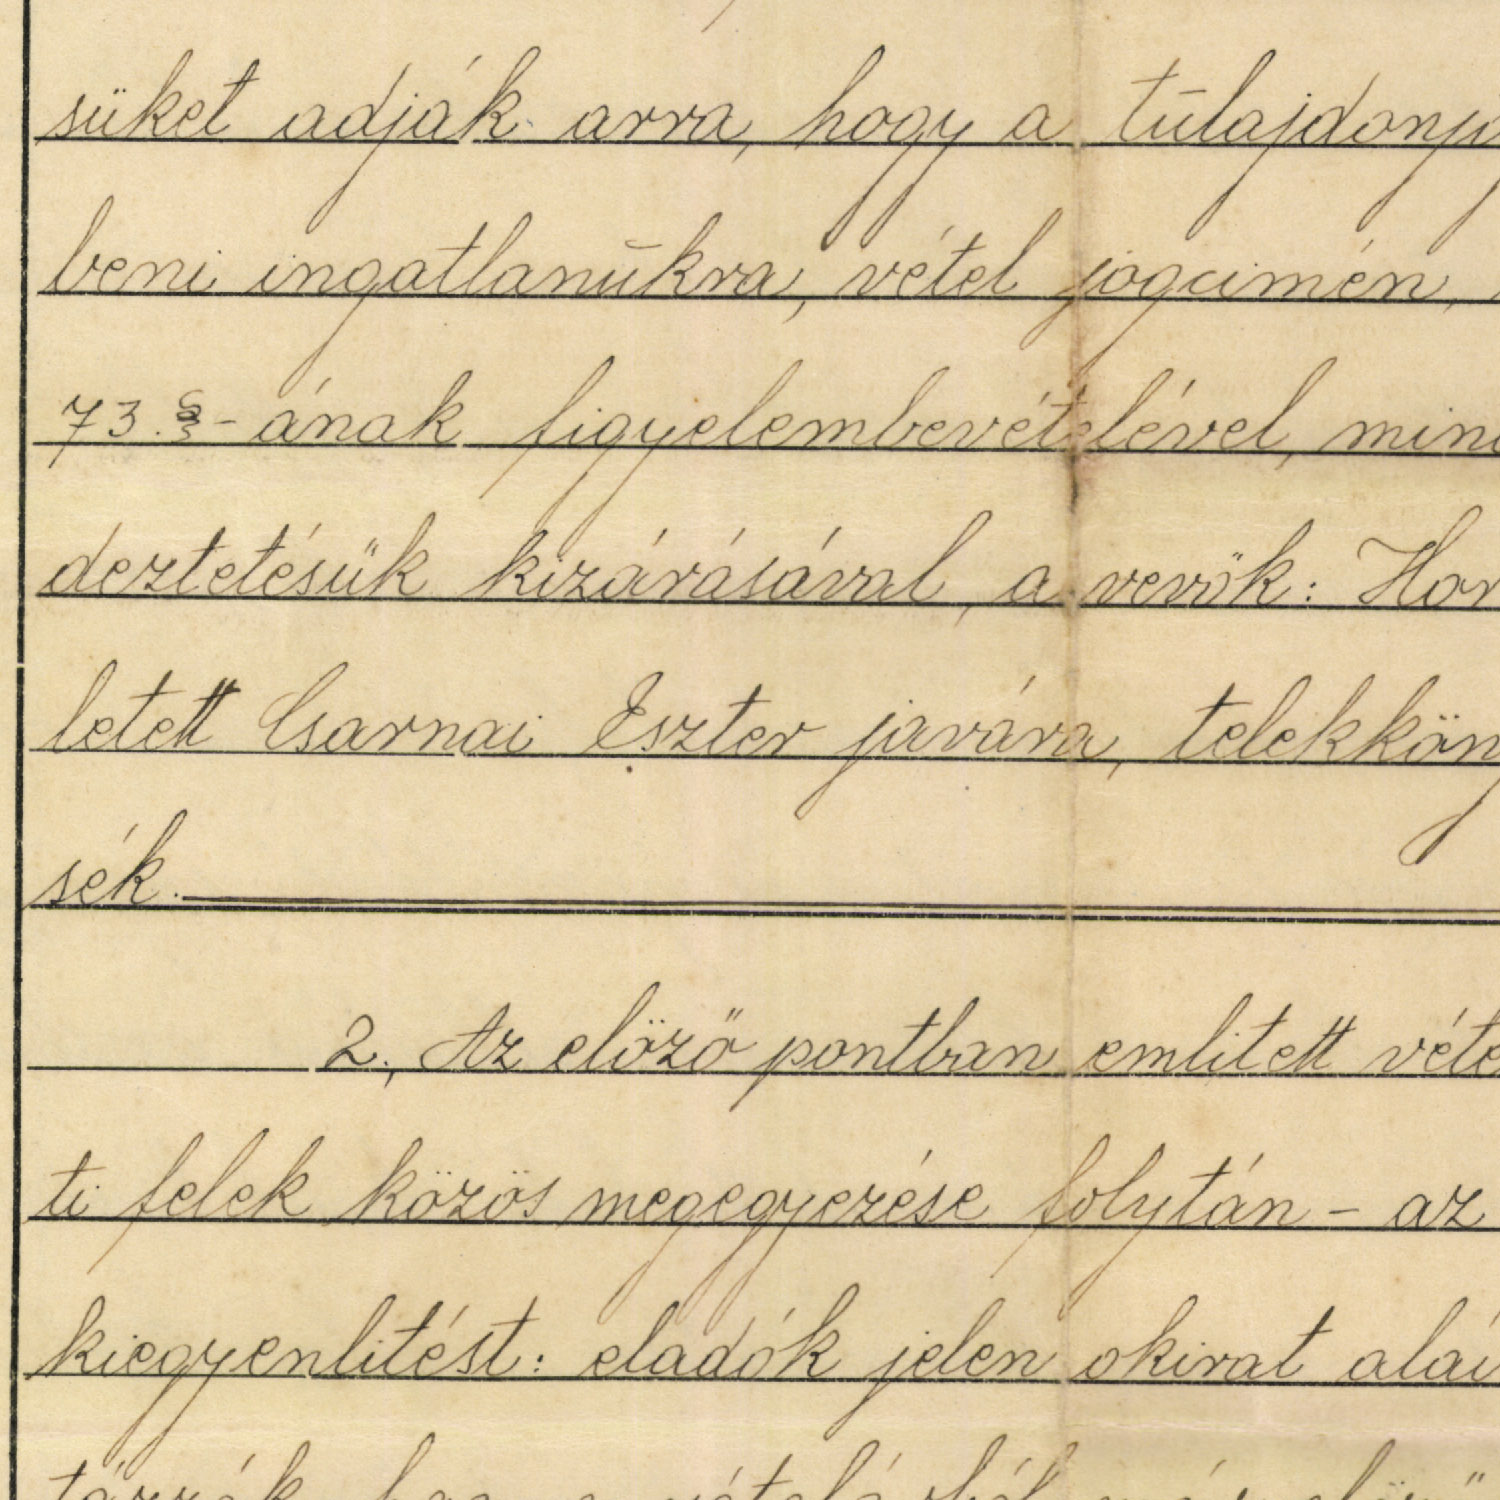 süket adják arra, hogy a tulajdonjo
beni ingatlanukra, vétel jogcimén,
73.§-ának figyelembevételével, mind
deztetésük kizárásával, a vevök: Hor
letett Csarnai Eszter javára, telekköny
sék.
2., Az elöző pontban emlitett véte
ti felek közös megegyezése folytán - az
kiegyenlitést: eladók jelen okirat alái